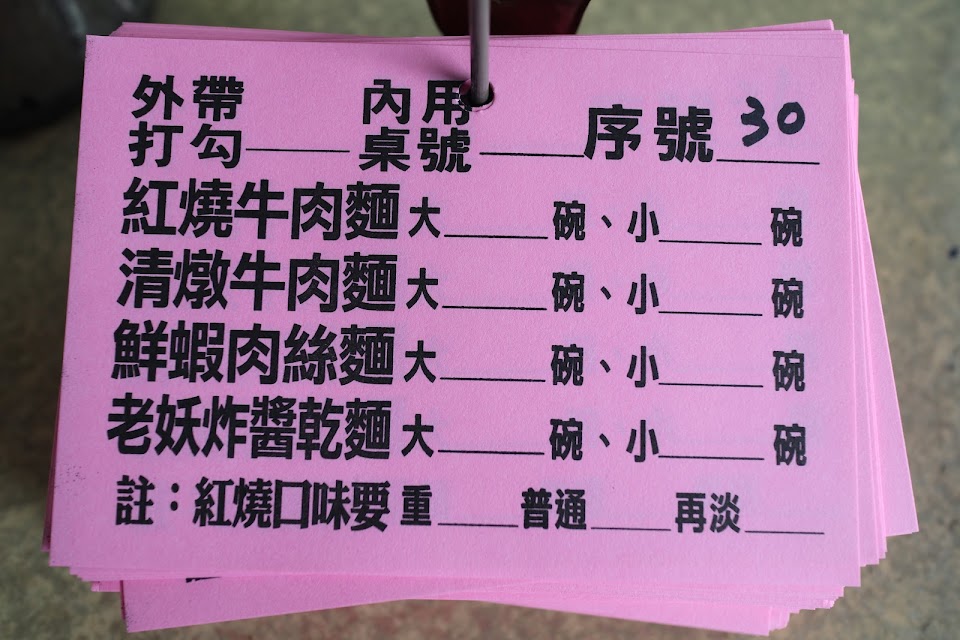 外帶 內用
打勾_____ 桌號_____ 序號 30
紅燒牛肉麵 大_____碗、小_____碗
清燉牛肉麵 大_____碗、小_____碗
鮮蝦肉絲麵 大_____碗、小_____碗
老妖炸醬乾麵 大_____碗、小_____碗
註：紅燒口味要 重____普通____再淡____